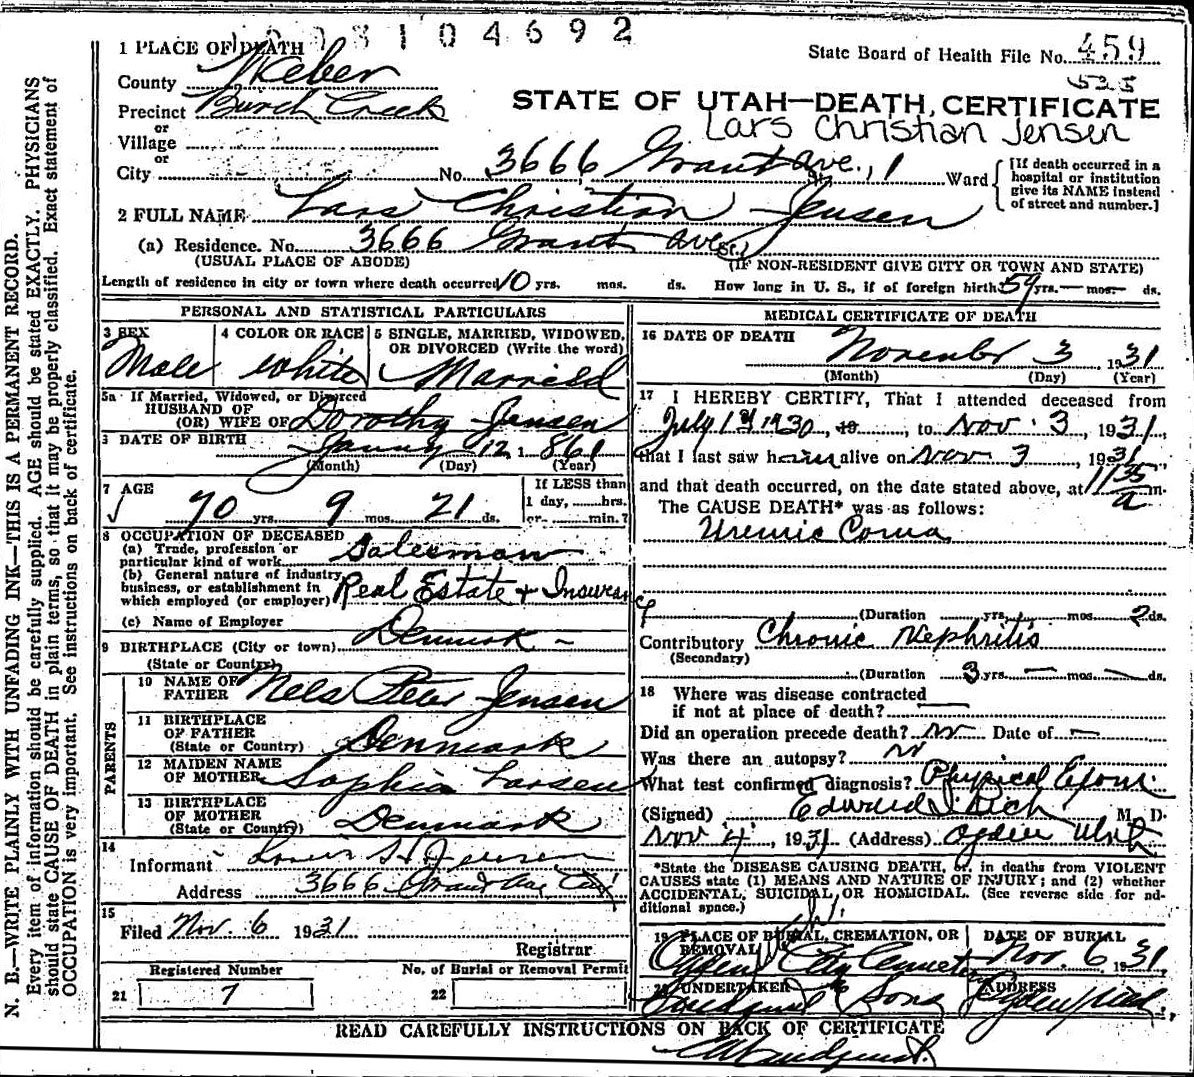 1003104692
1 PLACE OF DEATH
State Board of Health File No. 459
County Weber
535
Precinct Burch Creek
STATE OF UTAH—DEATH CERTIFICATE
or
Lars Christian Jensen
Village
or
City No. 3666 Grant Ave., St. Ward
[If death occurred in a hospital or institution give its NAME instead of street and number.]
2 FULL NAME Lars Christian Jensen
(a) Residence. No. 3666 Grant Ave St.
(USUAL PLACE OF ABODE) (IF NON-RESIDENT GIVE CITY OR TOWN AND STATE)
Length of residence in city or town where death occurred 10 yrs. mos. ds. How long in U. S., if of foreign birth 59 yrs. — mos. — ds.
PERSONAL AND STATISTICAL PARTICULARS
3 SEX
Male
4 COLOR OR RACE
White
5 SINGLE, MARRIED, WIDOWED, OR DIVORCED (Write the word)
Married
5a If Married, Widowed, or Divorced
HUSBAND OF
(OR) WIFE OF Dorothy Jensen
DATE OF BIRTH
12 1861
(Month) (Day) (Year)
7 AGE
70 yrs. 9 mos. 21 ds.
If LESS than
1 day, hrs.
or min.?
8 OCCUPATION OF DECEASED
(a) Trade, profession or
particular kind of work Salesman
(b) General nature of industry
business, or establishment in
which employed (or employer) Real Estate + Insurance
(c) Name of Employer
9 BIRTHPLACE (City or town) Denmark –
(State or Country)
PARENTS
10 NAME OF
FATHER Nels Peter Jensen
11 BIRTHPLACE
OF FATHER
(State or Country) Denmark
12 MAIDEN NAME
OF MOTHER Sophia Larsen
13 BIRTHPLACE
OF MOTHER
(State or Country) Denmark
14
Informant Jensen
Address 3666
15
Filed Nov. 6 1931
Registrar
Registered Number
21 7
No. of Burial or Removal Permit
22
MEDICAL CERTIFICATE OF DEATH
16 DATE OF DEATH
November 3 1931
(Month) (Day) (Year)
17 I HEREBY CERTIFY, That I attended deceased from
July 1st 1930, 19 , to Nov. 3, 1931,
that I last saw him alive on Nov 3, 1931
and that death occurred, on the date stated above, at 11 35 a m.
The CAUSE DEATH* was as follows:
Uremic Coma
(Duration yrs. mos. 2 ds.
Contributory Chronic Nephritis
(Secondary)
(Duration 3 yrs. — mos. — ds.
18 Where was disease contracted
if not at place of death? —
Did an operation precede death? no Date of —
Was there an autopsy? no
What test confirmed diagnosis? Physical Exam.
(Signed) Edward I. Rich M. D.
Nov 4, 1931 (Address) Ogden Utah
*State the DISEASE CAUSING DEATH, or, in deaths from VIOLENT
CAUSES state (1) MEANS AND NATURE OF INJURY; and (2) whether
ACCIDENTAL, SUICIDAL, OR HOMICIDAL. (See reverse side for additional space.)
19 PLACE OF BURIAL, CREMATION, OR REMOVAL
Ogden City Cemetery
DATE OF BURIAL
Nov. 6 1931
20 UNDERTAKER
& Sons
ADDRESS
Ogden, Utah
READ CAREFULLY INSTRUCTIONS ON BACK OF CERTIFICATE
N. B.—WRITE PLAINLY WITH UNFADING INK—THIS IS A PERMANENT RECORD.
Every item of information should be carefully supplied. AGE should be stated EXACTLY. PHYSICIANS
should state CAUSE OF DEATH in plain terms, so that it may be properly classified. Exact statement of
OCCUPATION is very important. See instructions on back of certificate.